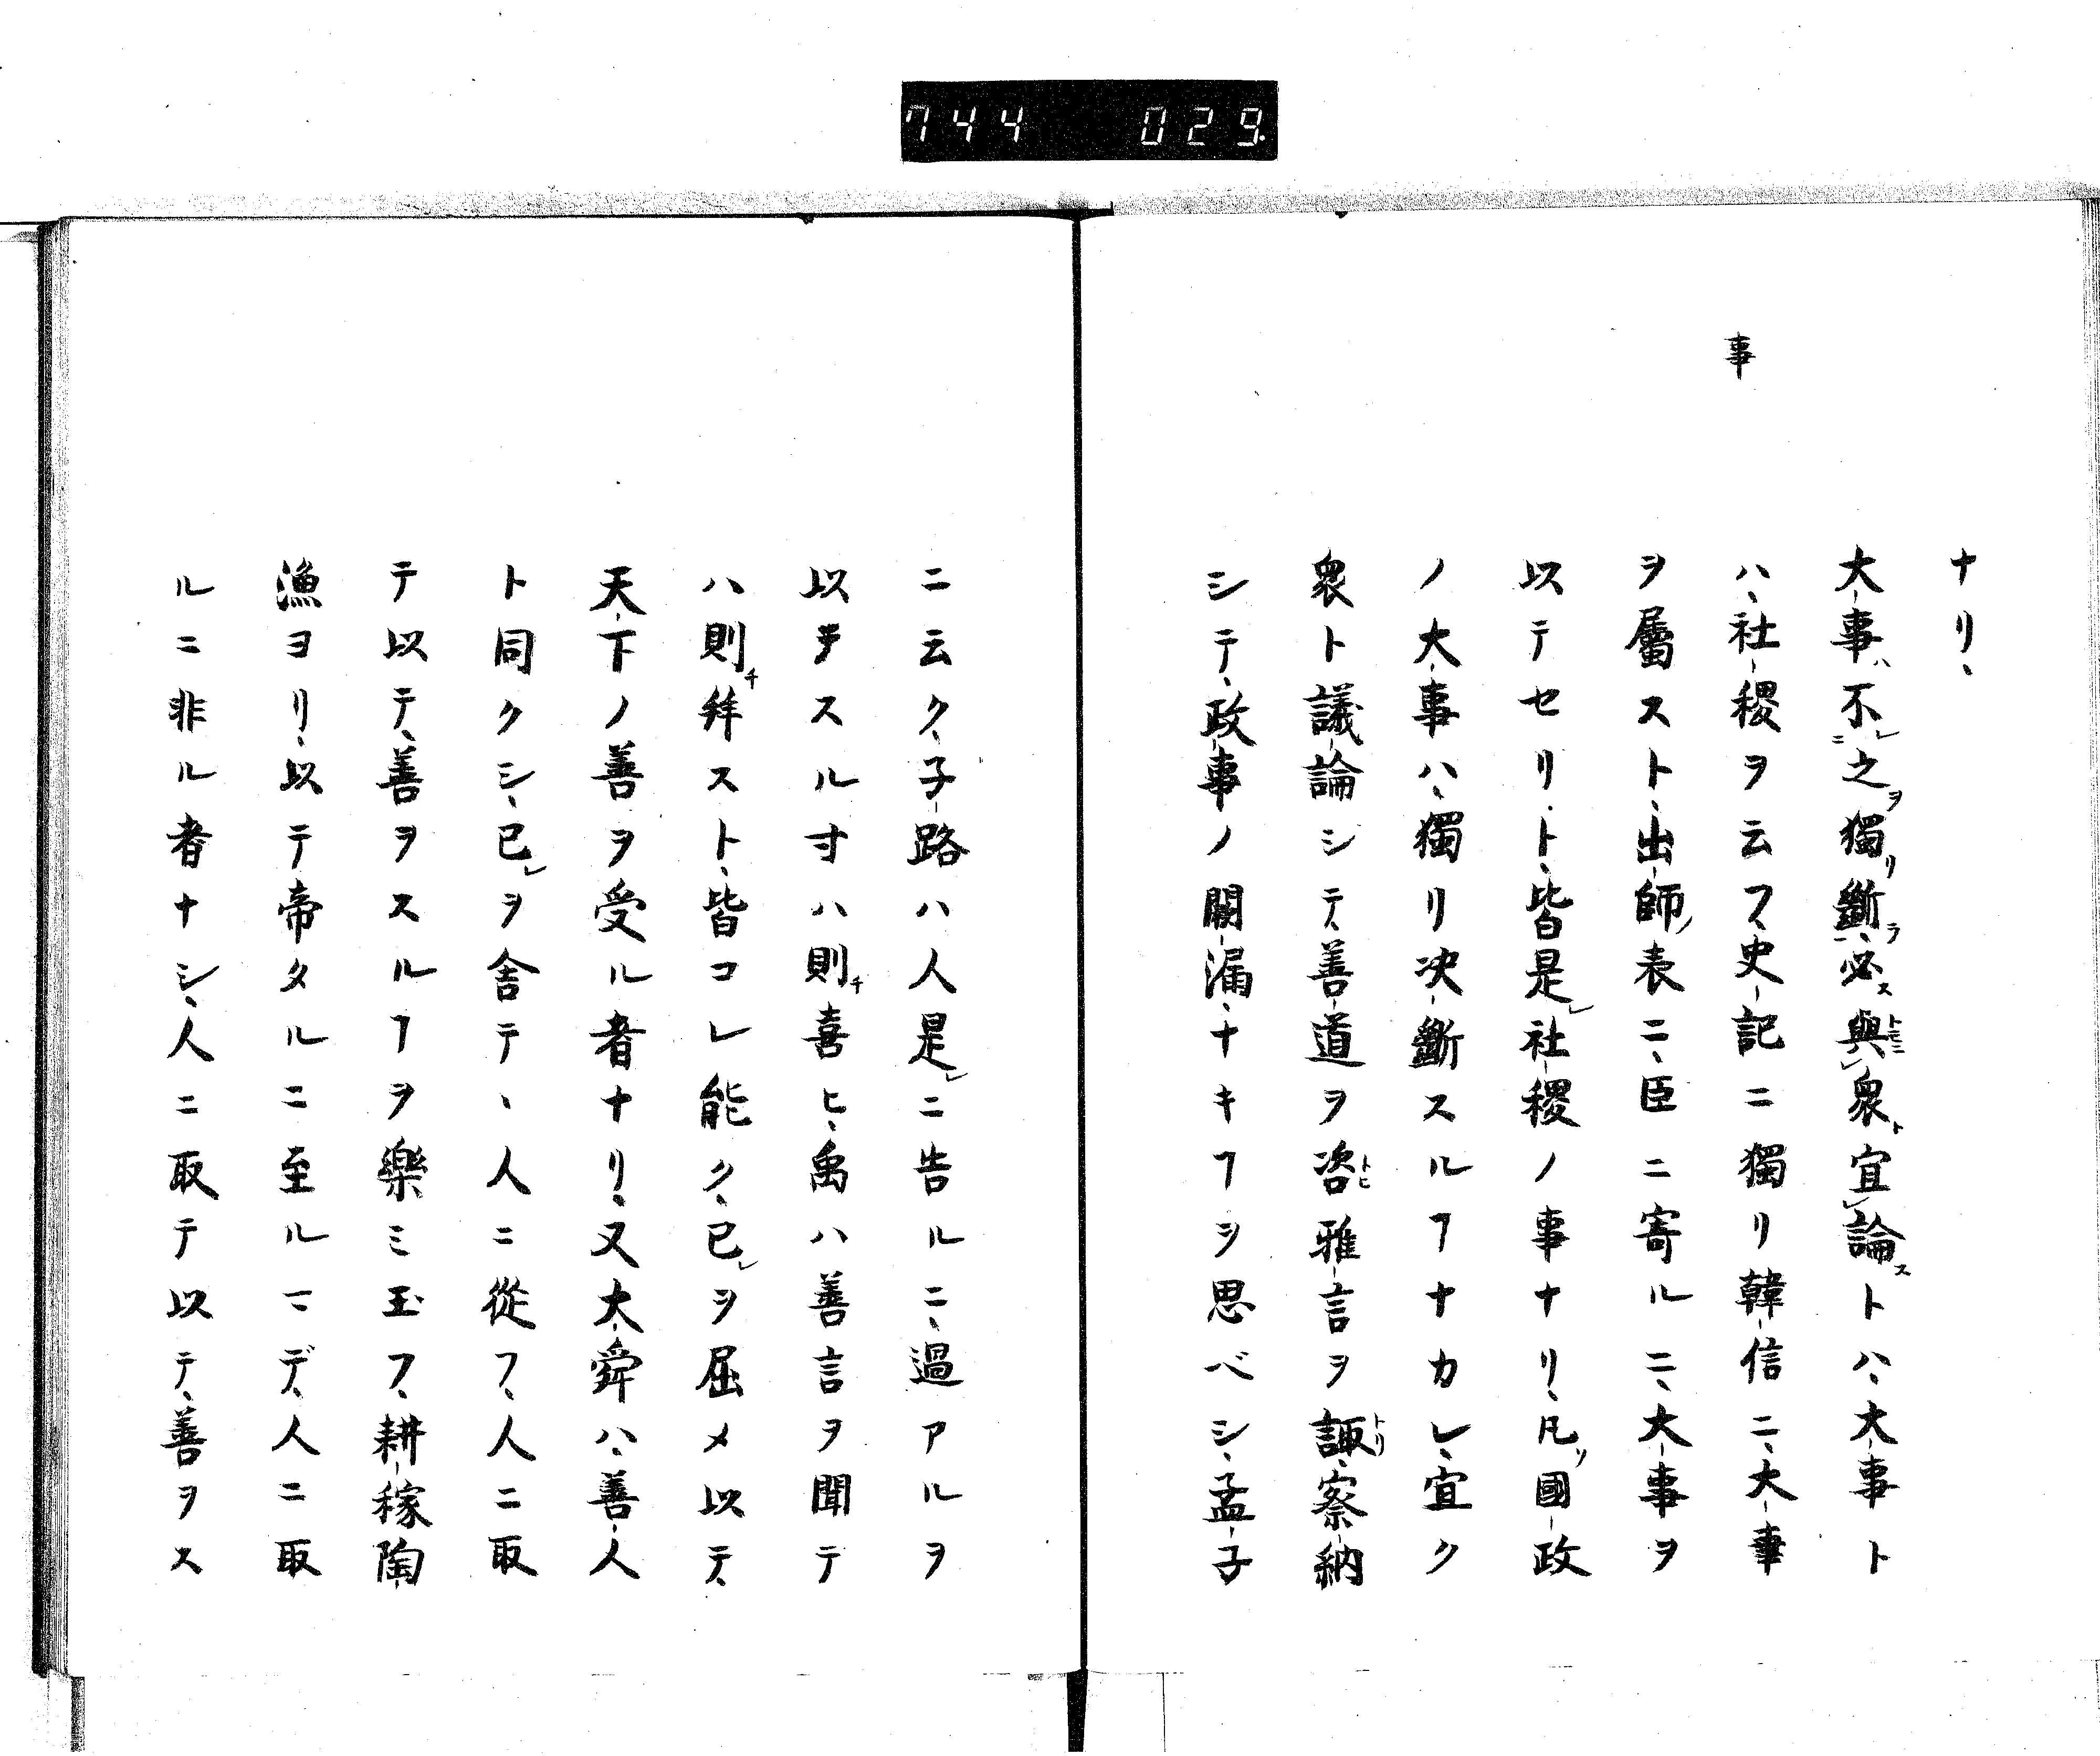 744 029
事
ナリ、
大事ハ不レ之ヲ獨リ斷ラ、必ス與トモニ衆ト宜レ論ストハ、大事ト
ハ、社稷ヲ云フ、史記ニ獨リ韓信ニ、大事
ヲ屬スト、出師ノ表ニ、臣ニ寄ルニ、大事ヲ
以テセリト、皆是レ社稷ノ事ナリ、凡ソ國政
ノ大事ハ、獨リ決斷スルヿナカレ、宜ク
衆ト議論シテ、善道ヲ咨トヒ雅言ヲ諏トリ、察納
シテ、政事ノ闕漏、ナキヿヲ思ベシ、孟子
ニ云ク、子路ハ人是レニ告ルニ、過アルヲ
以テスル寸ハ則チ喜ヒ、禹ハ善言ヲ聞テ
ハ則チ拜スト、皆コレ能ク、己レヲ屈メ以テ、
天下ノ善ヲ受ル者ナリ、又大舜ハ、善人
ト同クシ、己レヲ舍テ、人ニ從フ、人ニ取
テ以テ、善ヲスルヿヲ樂ミ玉フ、耕稼陶
漁ヨリ、以テ帝タルニ至ルマデ、人ニ取
ルニ非ル者ナシ、人ニ取テ以テ、善ヲス